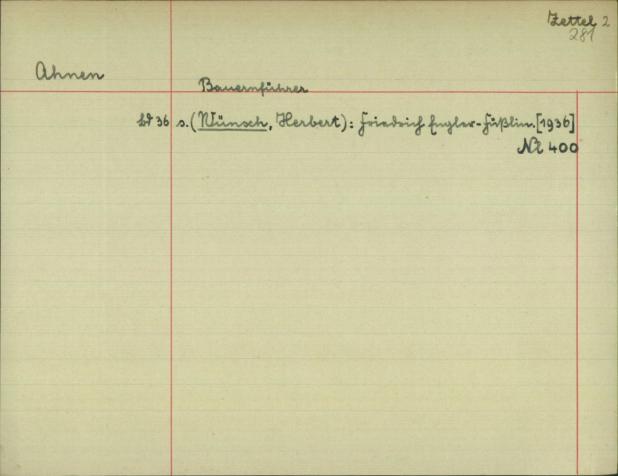 Zettel 2
281
Ahnen
Bauernführer
36 s. (Wünsch, Herbert): Friedrich Engler-Füßlin. [1936]
400